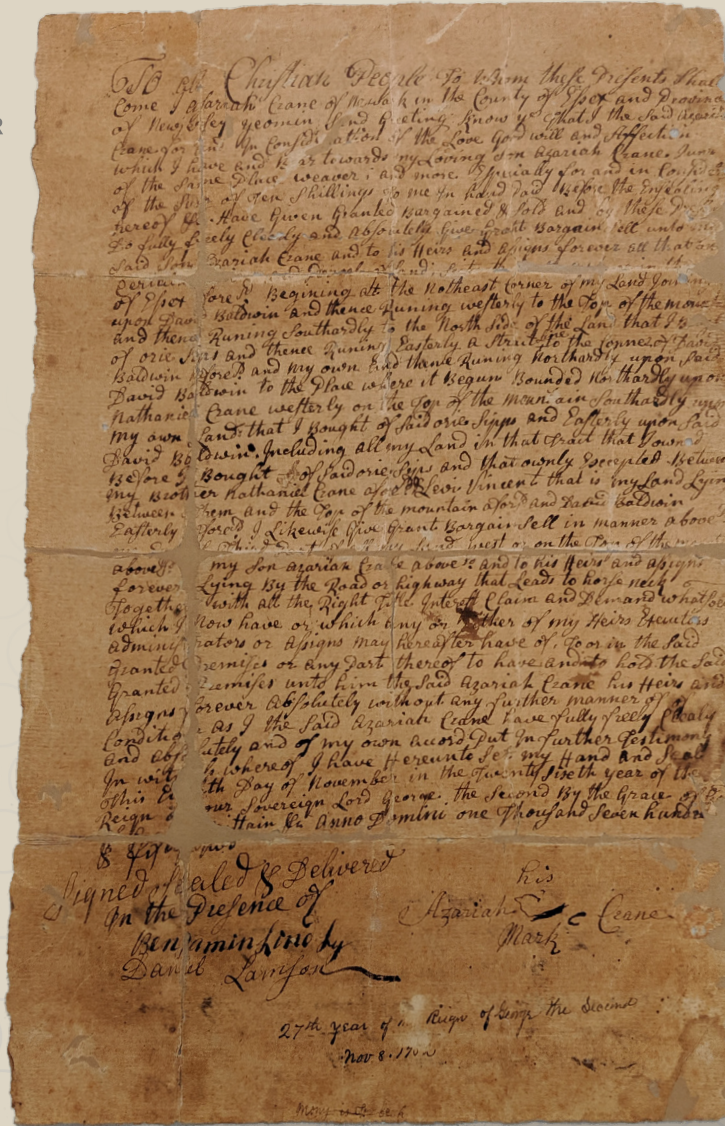 To all Christian People To whom these Presents Shall
come I Azariah Crane of Newark in the County of Essex and Province
of New Jersey yeomin Send Greeting Know ye that I the Said Azariah
Crane for and In Consideration of the Love Good will and Affection
which I have and Bear towards my Loving Son Azariah Crane Junr
of the Same Place weaver and more Especially for and in
of the Sum of Ten Shillings to me In hand Paid Before the Ensealing
hereof Have Given Granted Bargained & Sold and by these
Do fully freely Clearly and absolutely Give Grant Bargain Sell unto my
Said Son Azariah Crane and to his Heirs and Assigns forever all that
certain
of Essex Begining att the Northeast Corner of my Land
upon David Baldwin and thence Runing westerly to the Top of the mount
and thence Runing Southardly to the North Side of the Land that I
of orie Sips and thence Runing Easterly a Strait to the of
Baldwin and my own and thence Runing Northardly upon Said
David Baldwin to the Place where it Begun Bounded Northardly upon
Nathaniel Crane westerly on the Top of the mountain Southardly upon
my own Land that I Bought of Said orie Sipps and Easterly upon Said
David Baldwin Including all my Land in that Tract that
Before I Bought of Said orie Sips and that ownly Excepted Between
my Brother Nathaniel Crane Levi Vincent that is my Land Lying
Between Them and the Top of the mountain aford and David Baldwin
Easterly I Likewise Give Grant Bargain Sell in manner above
west or on the Top of the
above my Son Azariah Crane above and to his Heirs and assigns
forever Lying By the Road or highway that Leads to horse neck
Together with all the Right Title Interest Claim and Demand whatsoe
which I Now have or which any or Either of my Heirs Executors
administrators or Assigns may hereafter have of To or in the Said
Granted Premises or any Part thereof to have and to hold the Said
Granted Premises unto him the Said Azariah Crane his Heirs and
Assigns forever Absolutely without any further manner of
Condition as I the Said Azariah Crane have fully freely
and absolutely and of my own accord Put In further Testimony
In witness whereof I have Hereunto Set my Hand and Seal
This th Day of November in the Twenty Sixth year of the
Reign our Sovereign Lord George the Second By the Grace of
Anno Domini one Thousand Seven hundred
& fifty
Signed Sealed & Delivered
In the Presence of
his
Azariah Crane
Mark
Benjamin
Daniel Lamson
27th year of Reign of George the Second
Nov 8.